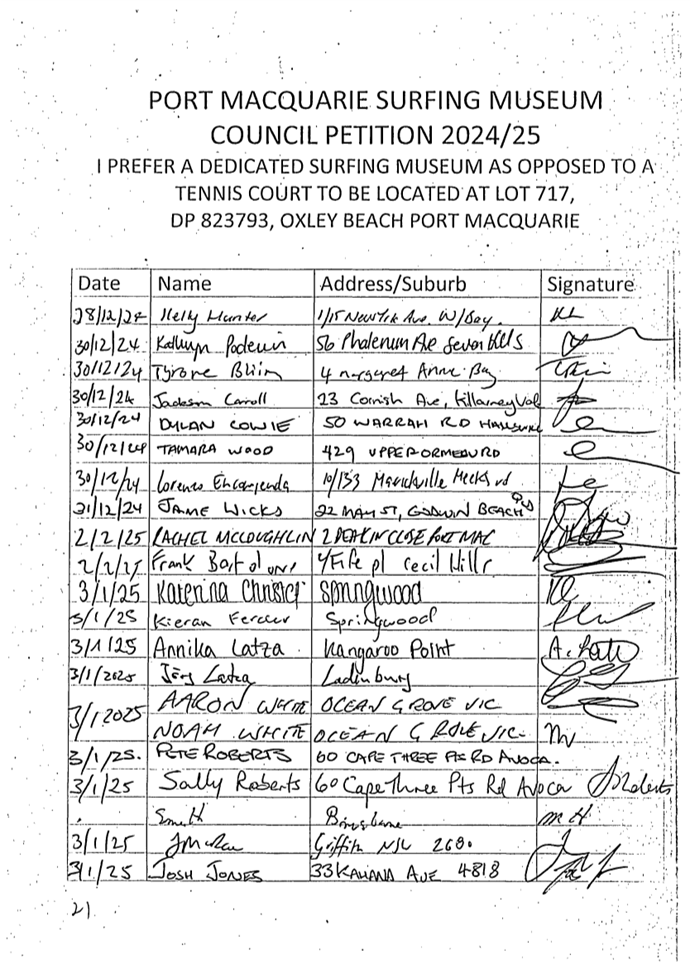 PORT MACQUARIE SURFING MUSEUM
COUNCIL PETITION 2024/25
I PREFER A DEDICATED SURFING MUSEUM AS OPPOSED TO A
TENNIS COURT TO BE LOCATED AT LOT 717,
DP 823793, OXLEY BEACH PORT MACQUARIE
Date Name Address/Suburb Signature
28/12/24 Hunter 1/15 Ave
30/12/24 Kathryn 56 Ave Seven Hills
30/12/24 Tyrone 4 Margaret Anna Bay
30/12/24 Jackson Carroll 23 Cornish Ave, Killarney Val
30/12/24 DYLAN COWIE 50 WARRAH RD
30/12/24 TAMARA WOOD 429 UPPER ORMEAU RD
30/12/24 Lorenzo 10/133 Marrickville rd
21/12/24 JAMIE WICKS 22 MAY ST, GODWIN BEACH QLD
2/2/25 RACHEL MCLOUGHLIN 2 DEAKIN CLOSE PORT MAC
2/2/25 Frank Bartoloni 4 Fife pl cecil Hills
3/1/25 Katerina Springwood
3/1/25 Kieran Springwood
3/1/25 Annika Latza Kangaroo Point
3/1/2025 Jörg Latza Ladenburg
3/1 2025 AARON WHITE OCEAN GROVE VIC
NOAH WHITE OCEAN GROVE VIC.
3/1/25. PETE ROBERTS 60 CAPE THREE PTS RD AVOCA.
3/1/25 Sally Roberts 60 Cape Three Pts Rd Avoca SRoberts
. Brisbane
3/1/25 Griffith NSW 2680
3/1/25 JOSH JONES 33 KAHANA AVE 4818
21